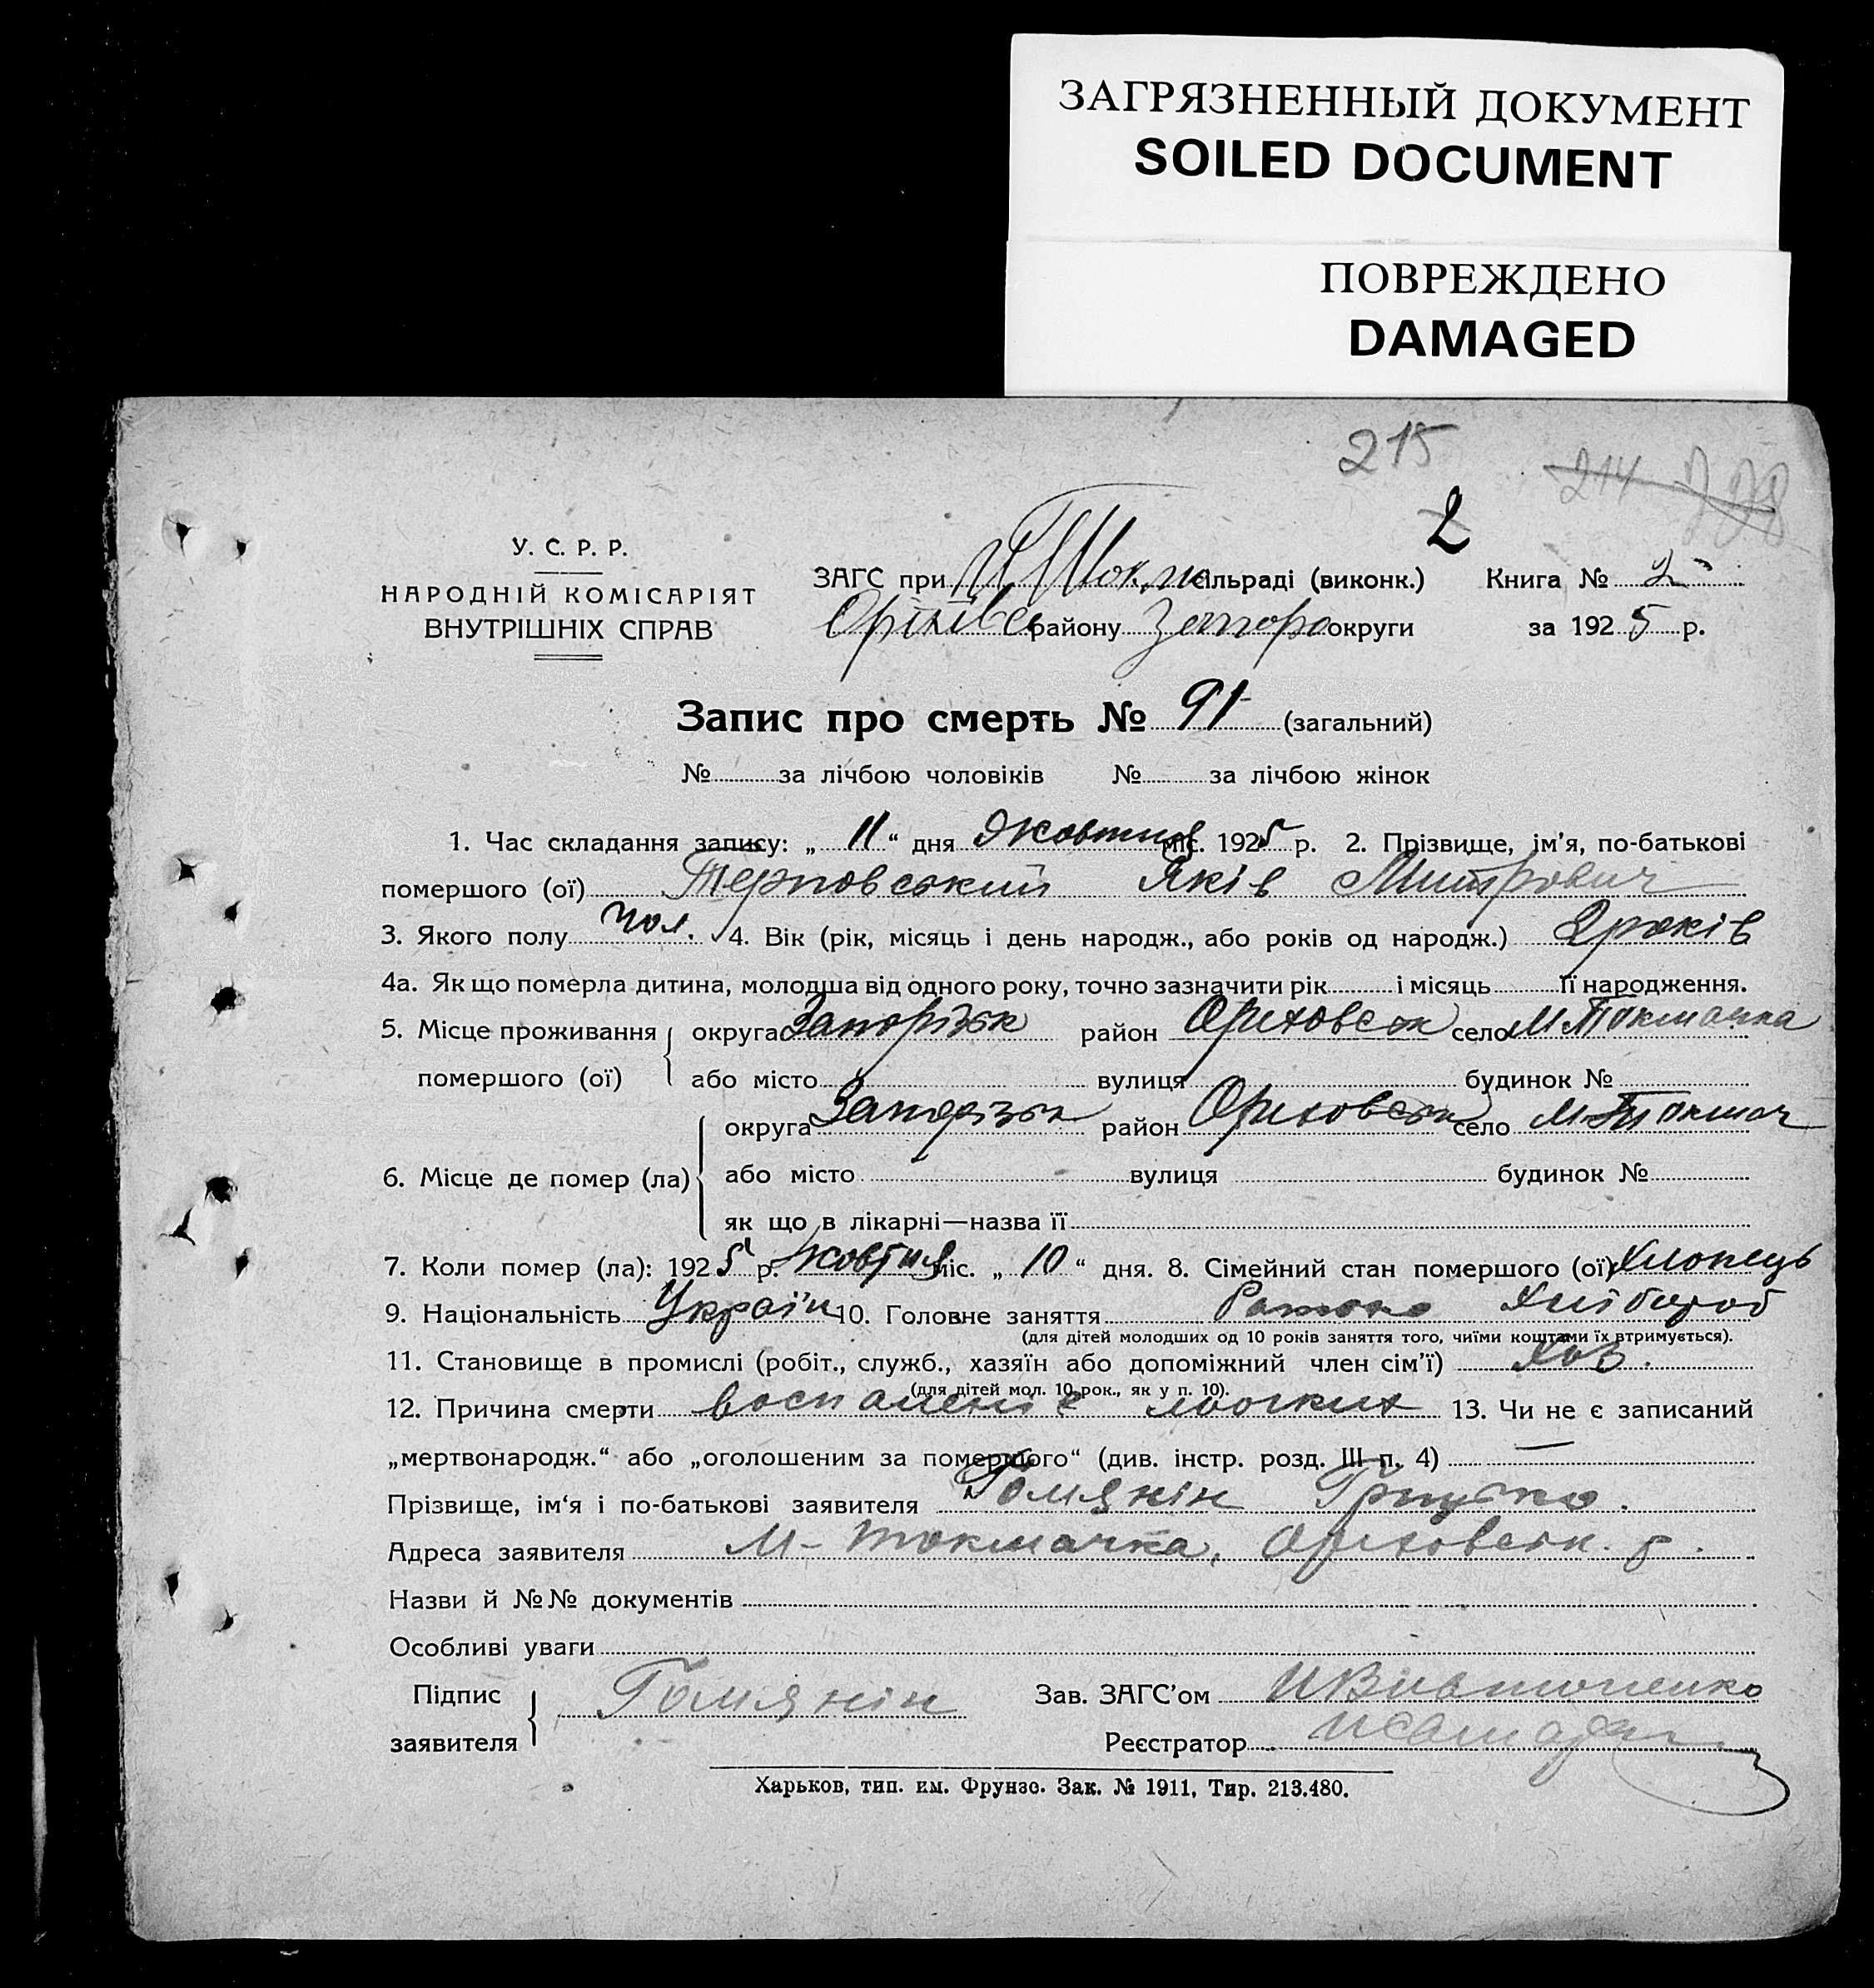 ЗАГРЯЗНЕННЫЙ ДОКУМЕНТ
SOILED DOCUMENT
ПОВРЕЖДЕНО
DAMAGED
215
214
2
У. С. Р. Р.
НАРОДНІЙ КОМІСАРІЯТ
ВНУТРІШНІХ СПРАВ
ЗАГС при М Токм сільраді (виконк.) Книга № 2
Оріхівс району Запоро округи за 1925 р.
Запис про смерть № 91 (загальний)
№ за лічбою чоловіків № за лічбою жінок
1. Час складання запису: „ 11 “ дня Жовтня міс. 1925 р. 2. Прізвище, ім'я, по-батькові
помершого (ої) Терновський Яків Митрович
3. Якого полу чол. 4. Вік (рік, місяць і день народж., або років од народж.) 2 років
4а. Як що померла дитина, молодша від одного року, точно зазначити рік і місяць її народження.
5. Місце проживання помершого (ої) округа Запорізьк район Ориховськ село М Токмачка
або місто вулиця будинок №
6. Місце де помер (ла) округа Запорізьк район Ориховськ село М-Токмач
або місто вулиця будинок №
як що в лікарні—назва її
7. Коли помер (ла): 1925 р. Жовтня міс. „ 10 “ дня. 8. Сімейний стан помершого (ої) Хлопець
9. Національність Україн 10. Головне заняття Хлібороб
(для дітей молодших од 10 років заняття того, чиїми коштами їх втримується).
11. Становище в промислі (робіт., служб., хазяїн або допоміжний член сім'ї) Хоз.
(для дітей мол. 10 рок., як у п. 10).
12. Причина смерти воспаленіе льогких 13. Чи не є записаний
„мертвонародж.“ або „оголошеним за помершого“ (див. інстр. розд. III п. 4) —
Прізвище, ім'я і по-батькові заявителя Гомякін Грицько.
Адреса заявителя М-Токмачка, Ориховськ. р.
Назви й №№ документів
Особливі уваги
Підпис заявителя Гомякін Зав. ЗАГС'ом
Реєстратор
Харьков, тип. им. Фрунзе. Зак. № 1911, Тир. 213.480.